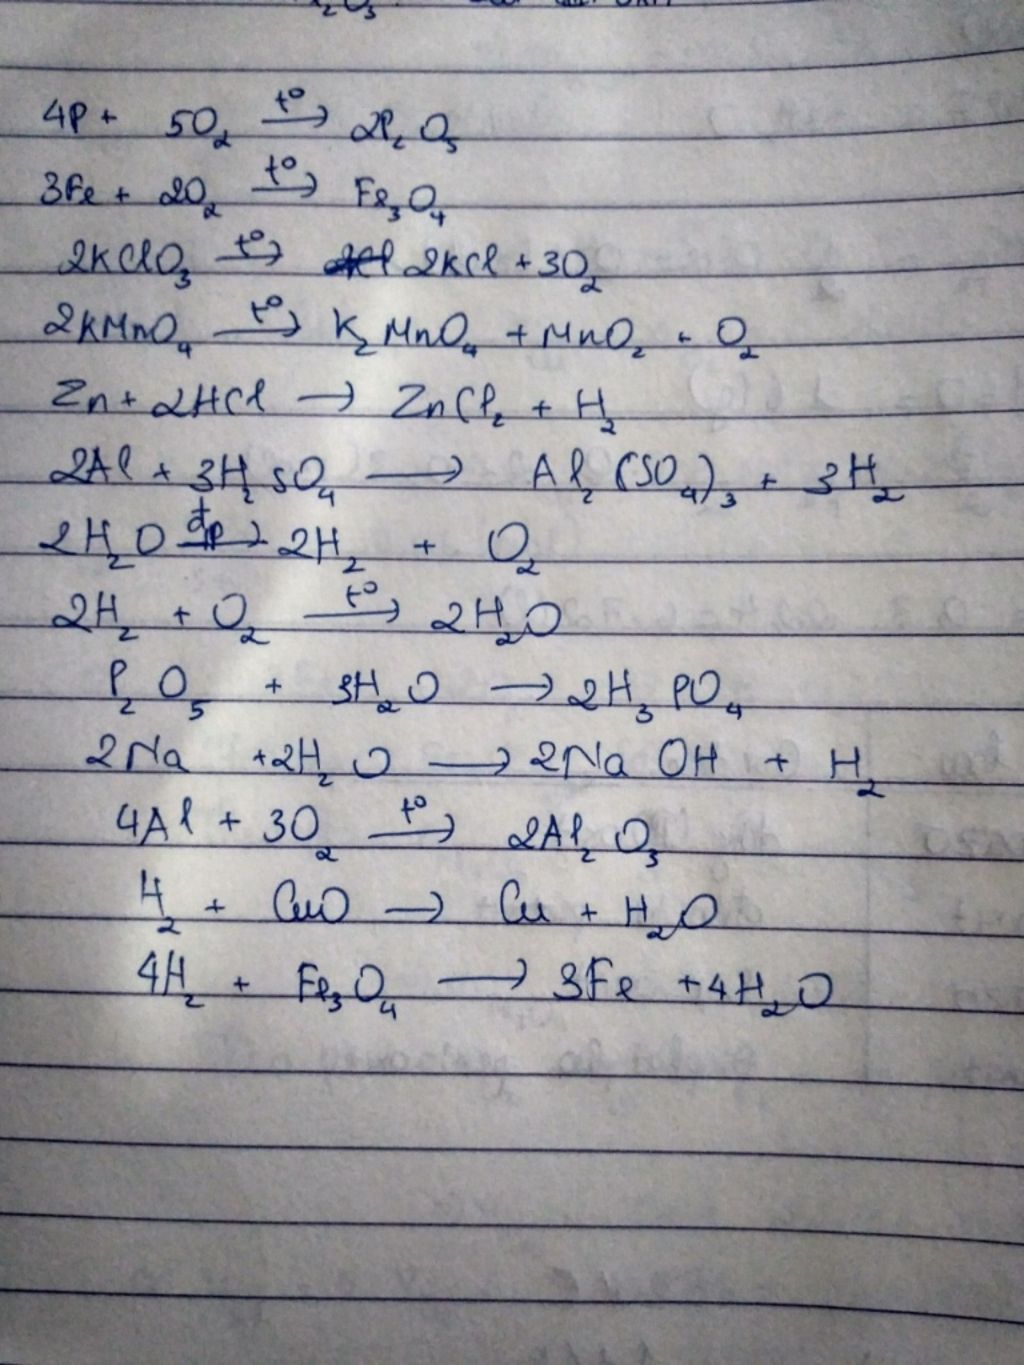 4P + 5O₂ —t°→ 2P₂O₅
3Fe + 2O₂ —t°→ Fe₃O₄
2KClO₃ —t°→ 2KCl + 3O₂
2KMnO₄ —t°→ K₂MnO₄ + MnO₂ + O₂
Zn + 2HCl → ZnCl₂ + H₂
2Al + 3H₂SO₄ → Al₂(SO₄)₃ + 3H₂
2H₂O —đp→ 2H₂ + O₂
2H₂ + O₂ —t°→ 2H₂O
P₂O₅ + 3H₂O → 2H₃PO₄
2Na + 2H₂O → 2NaOH + H₂
4Al + 3O₂ —t°→ 2Al₂O₃
H₂ + CuO → Cu + H₂O
4H₂ + Fe₃O₄ → 3Fe + 4H₂O